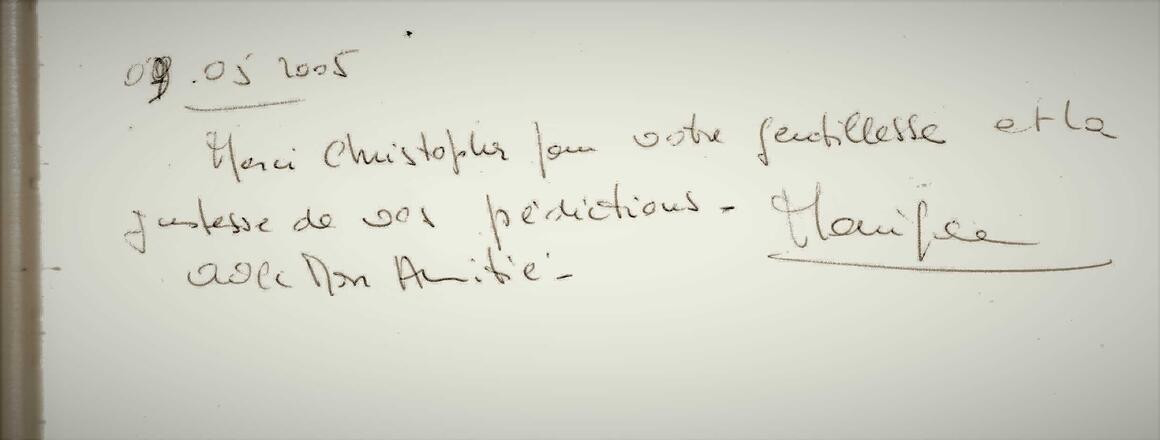 09.05 2005
Merci Christopher pour votre gentillesse et la
justesse de vos prédictions -
avec Mon Amitié -